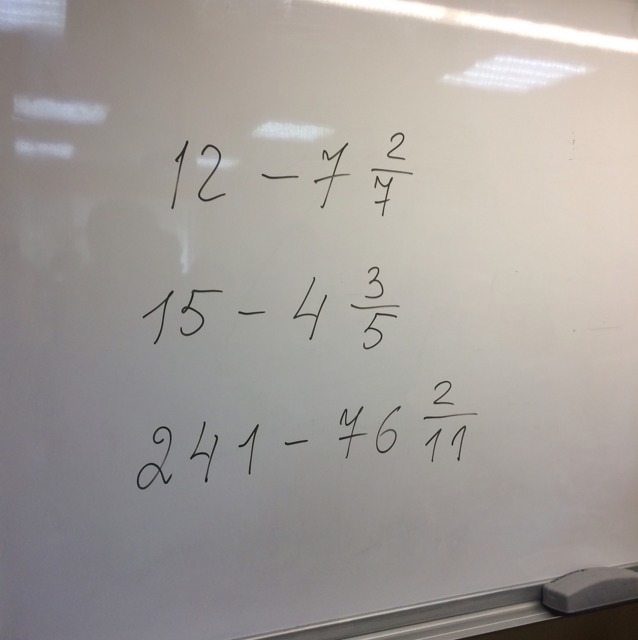 12 - 7 2/7
15 - 4 3/5
241 - 76 2/11